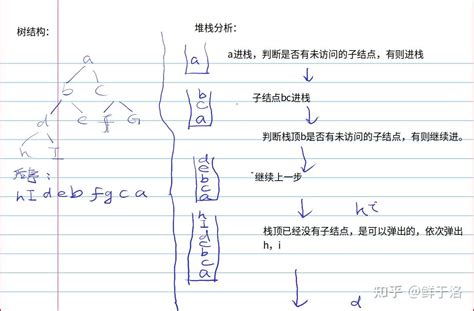 树结构：
a
b c
d e f G
h I
后序：
h I d e b f g c a
堆栈分析：
a
a进栈，判断是否有未访问的子结点，有则进栈
b
c
a
子结点bc进栈
判断栈顶b是否有未访问的子结点，有则继续进。
d
e
b
c
a
继续上一步
h i
h
I
d
e
b
c
a
栈顶已经没有子结点，是可以弹出的，依次弹出
h，i
d
知乎 @鲜于洛